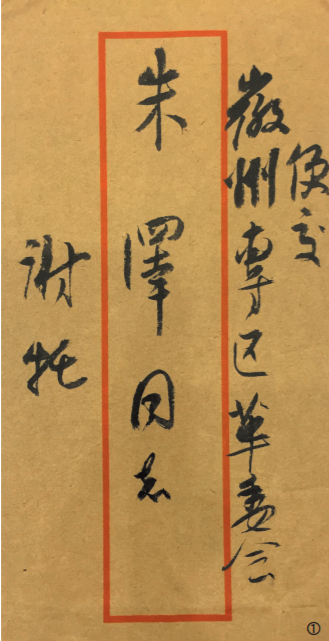 便交
徽州專区革委会
朱澤同志
谢托
①